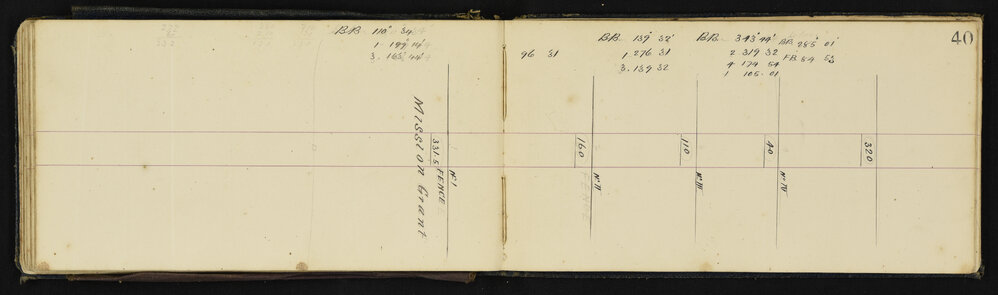 40
BB 110° 34'
1 199 14
3. 163 44
Mission Grant
331.5 FENCE
No I
96 31
BB 139° 32'
1 276 31
3. 139 32
160
No II
BB. 343° 44'
2 319 32
4 174 54
1 105.01
110
No III
BB 285° 01'
FB 54 53
40
No IV
320